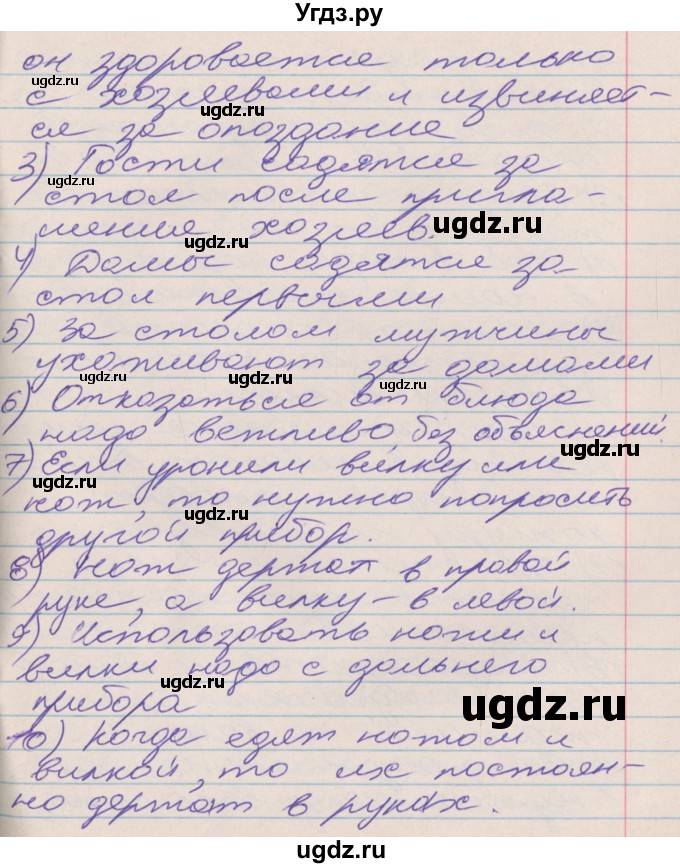 Угдз.ру
он здоровается только
ugdz.ru
с хозяевами и извиняет-
ugdz.ru
ся за опоздание
3) Гости садятся за
ugdz.ru
стол после пригла-
шения хозяев.
ugdz.ru
ugdz.ru
4) Дамы садятся за
стол первыми
ugdz.ru
5) За столом мужчины
ухаживают за дамами
ugdz.ru
ugdz.ru
ugdz.ru
6) Отказаться от блюда
надо вежливо, без объяснений.
7) Если уронили вилку или
нож, то нужно попросить
другой прибор.
8) Нож держат в правой
руке, а вилку – в левой.
9) Использовать ножи и
вилки надо с дальнего
ugdz.ru
прибора
ugdz.ru
10) Когда едят ножом и
вилкой, то их постоян-
но держат в руках.
ugdz.ru